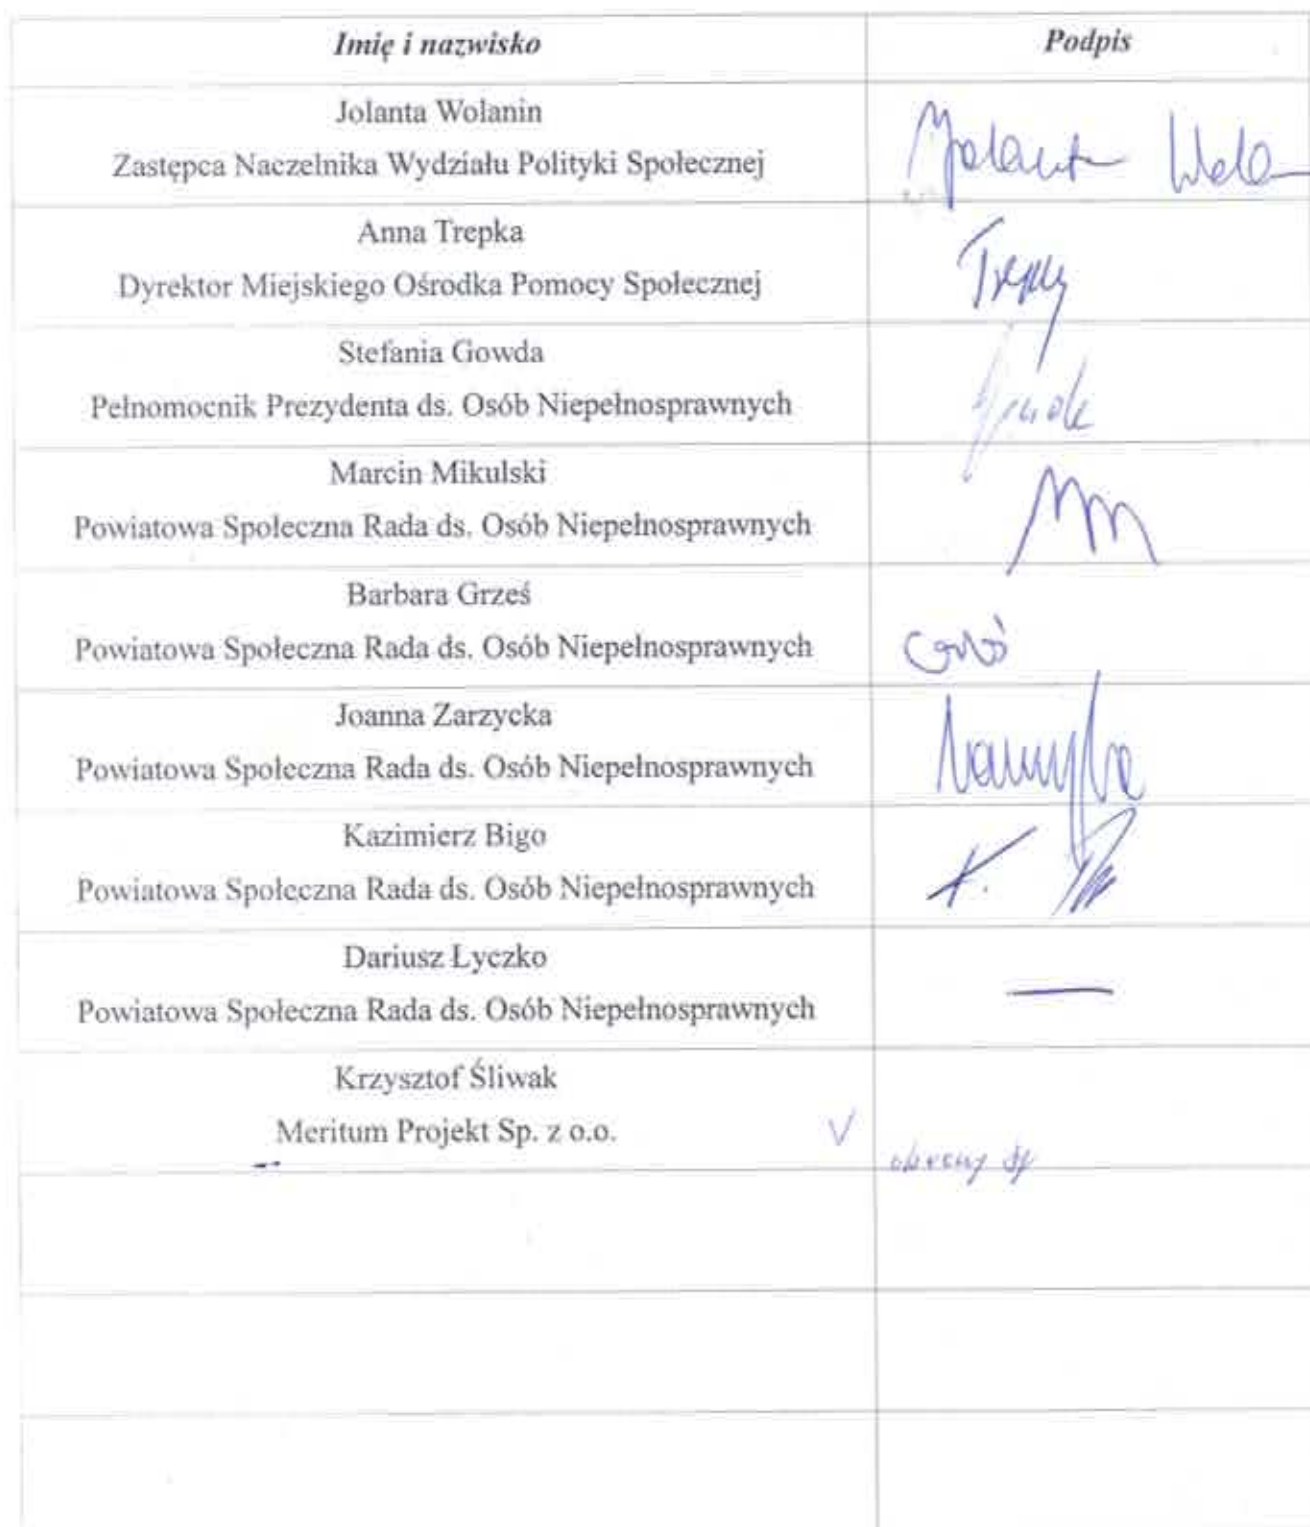 Imię i nazwisko
Podpis
Jolanta Wolanin
Zastępca Naczelnika Wydziału Polityki Społecznej
Jolanta Wola
Anna Trepka
Dyrektor Miejskiego Ośrodka Pomocy Społecznej
Stefania Gowda
Pełnomocnik Prezydenta ds. Osób Niepełnosprawnych
Marcin Mikulski
Powiatowa Społeczna Rada ds. Osób Niepełnosprawnych
Barbara Grześ
Powiatowa Społeczna Rada ds. Osób Niepełnosprawnych
Joanna Zarzycka
Powiatowa Społeczna Rada ds. Osób Niepełnosprawnych
Kazimierz Bigo
Powiatowa Społeczna Rada ds. Osób Niepełnosprawnych
K.
Dariusz Łyczko
Powiatowa Społeczna Rada ds. Osób Niepełnosprawnych
—
Krzysztof Śliwak
Meritum Projekt Sp. z o.o.
V